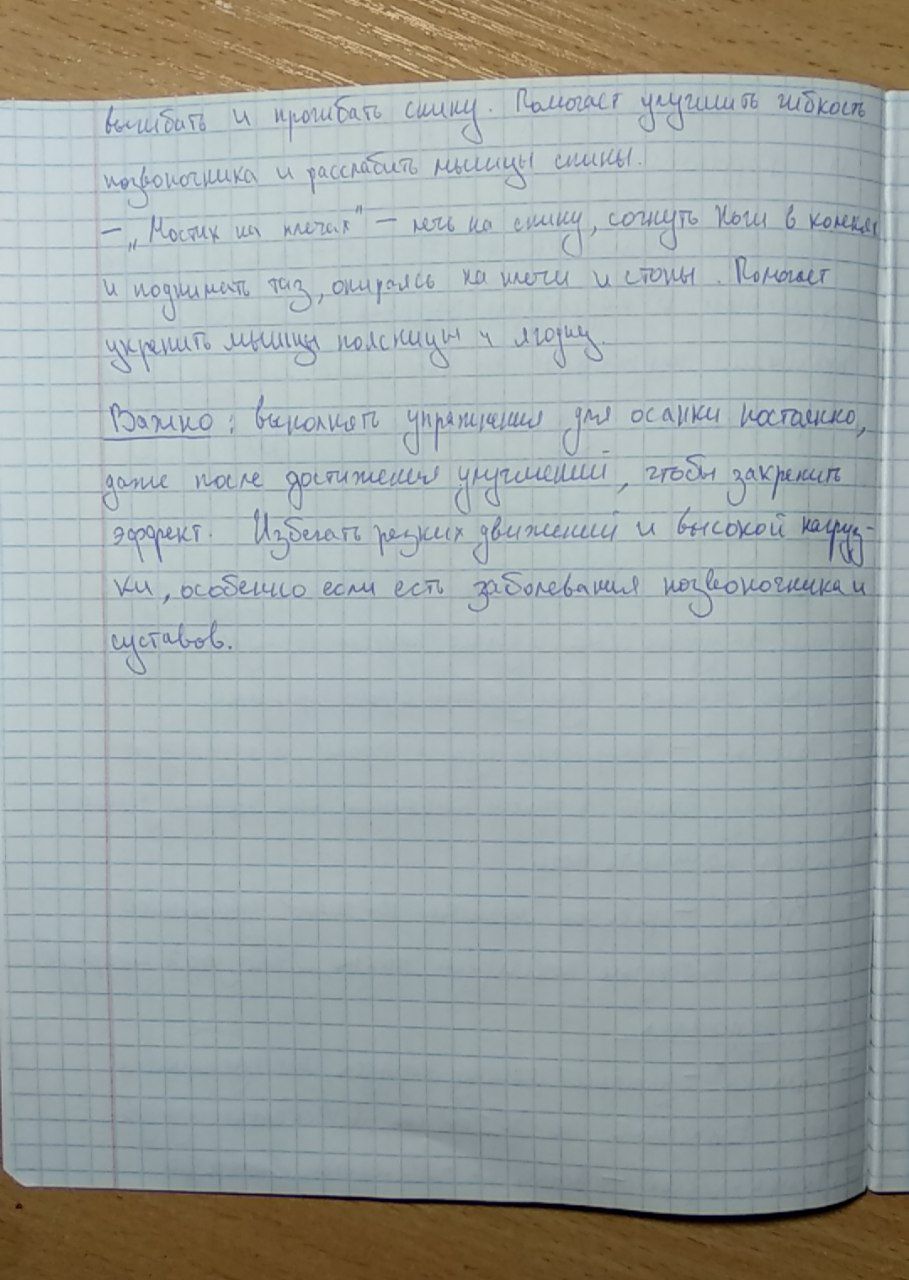 выгибать и прогибать спину. Помогает улучшить гибкость
позвоночника и расслабить мышцы спины.
– „Мостик на плечах" – лечь на спину, согнуть ноги в коленях
и поднимать таз, опираясь на плечи и стопы. Помогает
укрепить мышцы поясницы и ягодиц.
Важно: выполнять упражнения для осанки постоянно,
даже после достижения улучшений, чтобы закрепить
эффект. Избегать резких движений и высокой нагруз-
ки, особенно если есть заболевания позвоночника и
суставов.